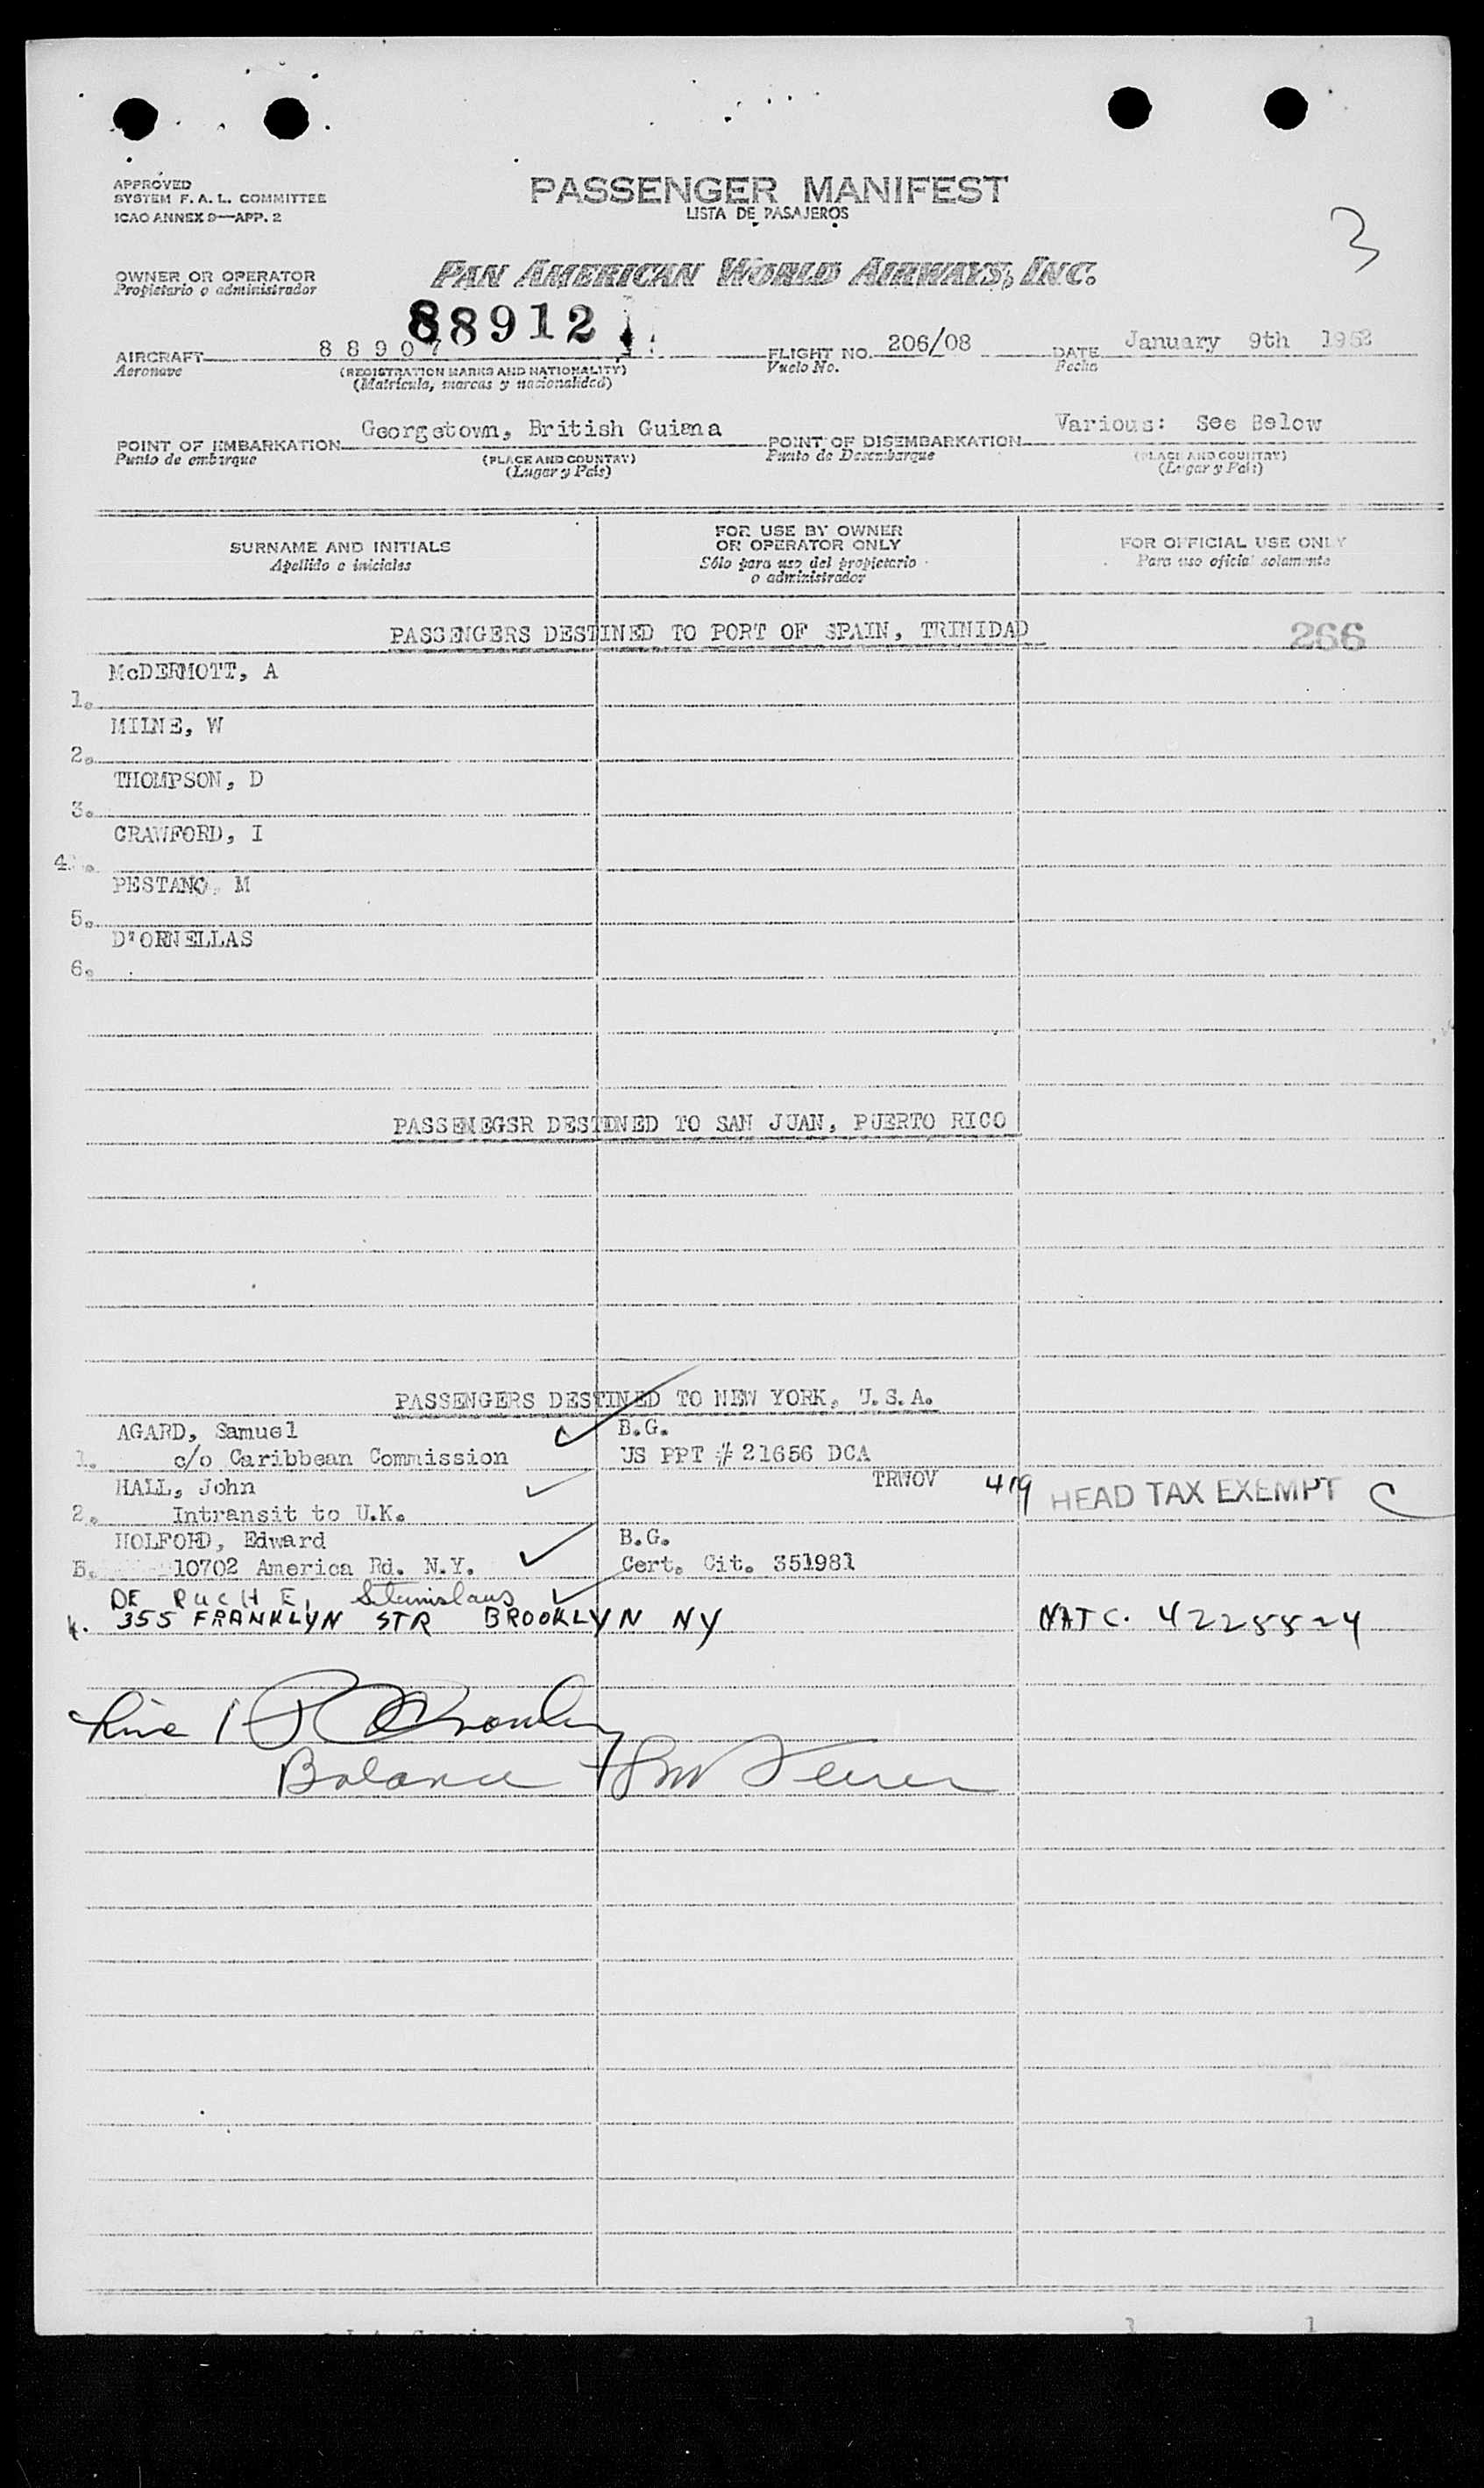 APPROVED
SYSTEM F. A. L. COMMITTEE
ICAO ANNEX 9—APP. 2
PASSENGER MANIFEST
LISTA DE PASAJEROS
3
OWNER OR OPERATOR
Propietario o administrador
PAN AMERICAN WORLD AIRWAYS, INC.
88912
AIRCRAFT 88907
Aeronave
(REGISTRATION MARKS AND NATIONALITY)
(Matrícula, marcas y nacionalidad)
FLIGHT NO. 206/08
Vuelo No.
DATE January 9th 1952
Fecha
POINT OF EMBARKATION Georgetown, British Guiana
Punto de embarque
(PLACE AND COUNTRY)
(Lugar y País)
POINT OF DISEMBARKATION Various: See Below
Punto de Desembarque
(PLACE AND COUNTRY)
(Lugar y País)
SURNAME AND INITIALS
Apellido e iniciales
FOR USE BY OWNER
OR OPERATOR ONLY
Sólo para uso del propietario
o administrador
FOR OFFICIAL USE ONLY
Para uso oficial solamente
PASSENGERS DESTINED TO PORT OF SPAIN, TRINIDAD
266
McDERMOTT, A
1.
MILNE, W
2.
THOMPSON, D
3.
CRAWFORD, I
4.
PESTANO, M
5.
D'ORNELLAS
6.
PASSENEGSR DESTINED TO SAN JUAN, PUERTO RICO
PASSENGERS DESTINED TO NEW YORK, U.S.A.
AGARD, Samuel B.G.
1. c/o Caribbean Commission US PPT # 21656 DCA
HALL, John TRWOV 419 HEAD TAX EXEMPT C
2. Intransit to U.K.
HOLFORD, Edward B.G.
3. 10702 America Rd. N.Y. Cert. Cit. 351981
DE RUCHE, Stanislaus
4. 355 FRANKLYN STR BROOKLYN NY NATC. 4225524
Line 1
Balance